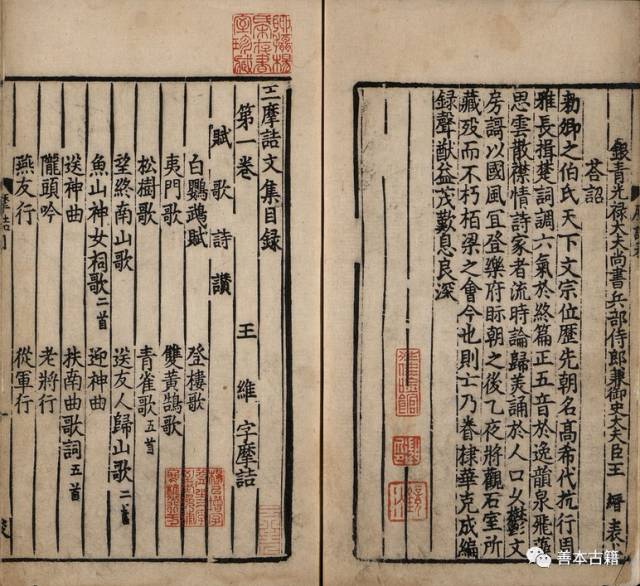 銀青光禄大夫尚書兵部侍郎兼御史大夫臣王 縉表
荅詔
勑卿之伯氏天下文宗位歷先朝名髙希代抗行周
雅長揖楚詞調六氣於終篇正五音於逸韻泉飛藻
思雲散襟情詩家者流時論歸美誦於人口久欝文
房謌以國風宜登樂府眎朝之後乙夜將觀石室所
藏歿而不朽柏梁之會今也則亡乃眷棣華克成編
録聲猷益茂歎息良深
王摩詰文集目録
第一卷 王 維 字摩詰
賦 歌 詩 讃
白鸚鵡賦 登樓歌
夷門歌 雙黃鵠歌
松樹歌 青雀歌五首
望終南山歌 送友人歸山歌二首
魚山神女祠歌二首 迎神曲
送神曲 扶南曲歌詞五首
隴頭吟 老將行
燕友行 從軍行
善本古籍